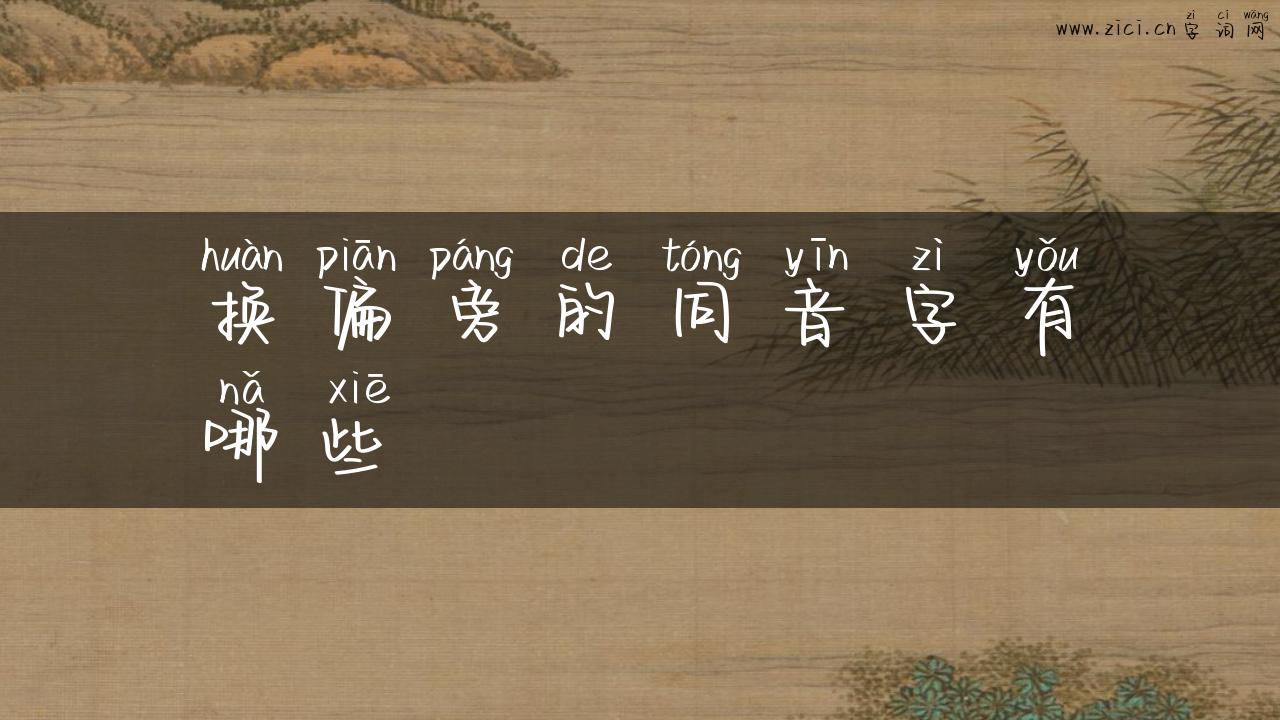 zì cí wǎng
www.zici.cn 字词网
huàn piān páng de tóng yīn zì yǒu
换偏旁的同音字有
nǎ xiē
哪些